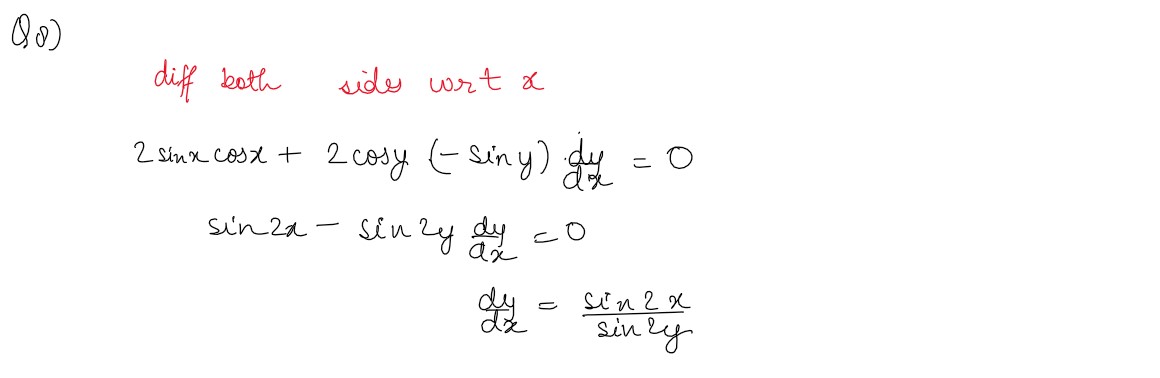 Q8)
diff both sides wrt x
2 sinx cosx + 2 cosy (- sin y) . dy/dx = 0
sin 2x - sin 2y dy/dx = 0
dy/dx = sin 2x / sin 2y